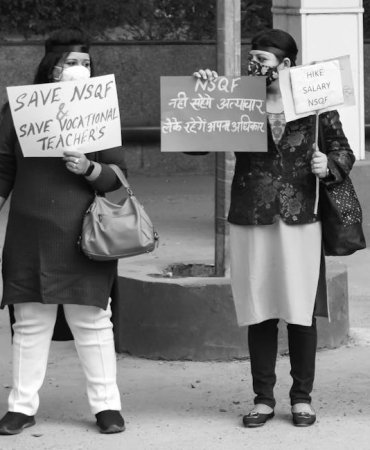 SAVE NSQF
&
SAVE VOCATIONAL
TEACHER'S
NSQF
नही सहेगे अत्याचार
लेके रहेगें अपना अधिकार
HIKE
SALARY
NSQF